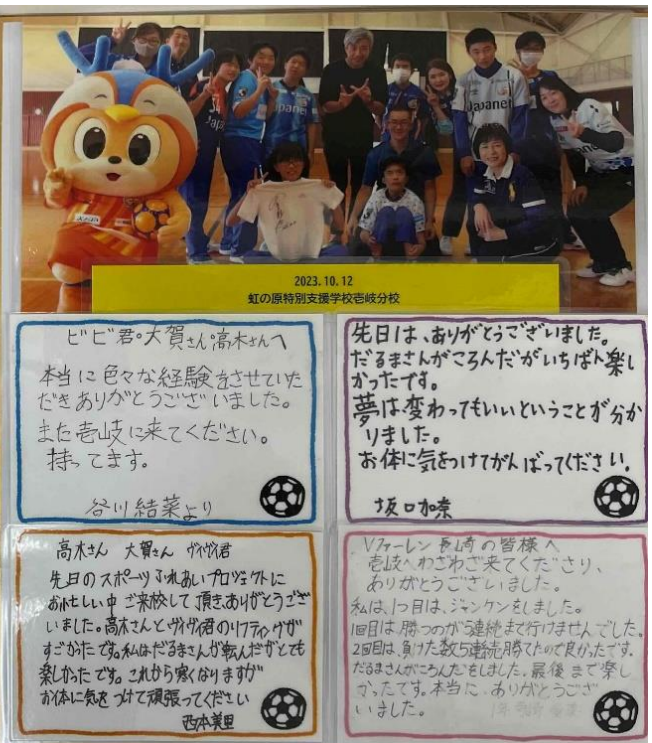 Japanet
Japanet
2023.10.12
虹の原特別支援学校壱岐分校
ビビ君・大賀さん・高木さんへ
本当に色々な経験をさせていた
だきありがとうございました。
また壱岐に来てください。
持ってます。
谷川結菜より
先日は、ありがとうございました。
だるまさんがころんだがいちばん楽し
かったです。
夢は変わってもいいということが分か
りました。
お体に気をつけてがんばってください。
坂口加奈
高木さん 大賀さん ヴィヴィ君
先日のスポーツふれあいプロジェクトに
お忙しい中ご来校して頂き、ありがとうござ
いました。高木さんとヴィヴィ君のリフティングが
すごかったです。私はだるまさんが転んだがとても
楽しかったです。これから寒くなりますが
お体に気をつけて頑張ってください
西本美里
Vファーレン長崎の皆様へ
壱岐へわざわざ来てくださり、
ありがとうございました。
私は、1つ目は、ジャンケンをしました。
1回目は勝つのが5連続まで行けませんでした。
2回目は、負けた数5連続勝てたので良かったです。
だるまさんがころんだをしました。最後まで楽し
かったです。本当に、ありがとうござ
いました。 1年